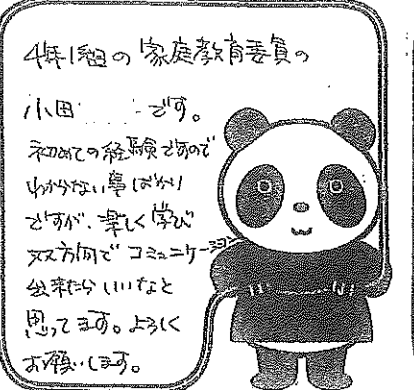 4年1組の家庭教育委員の
小田 です。
初めての経験ですので
わからない事ばかり
ですが、楽しく学び
双方向でコミュニケーション
出来たらいいなと
思ってます。よろしく
お願いします。